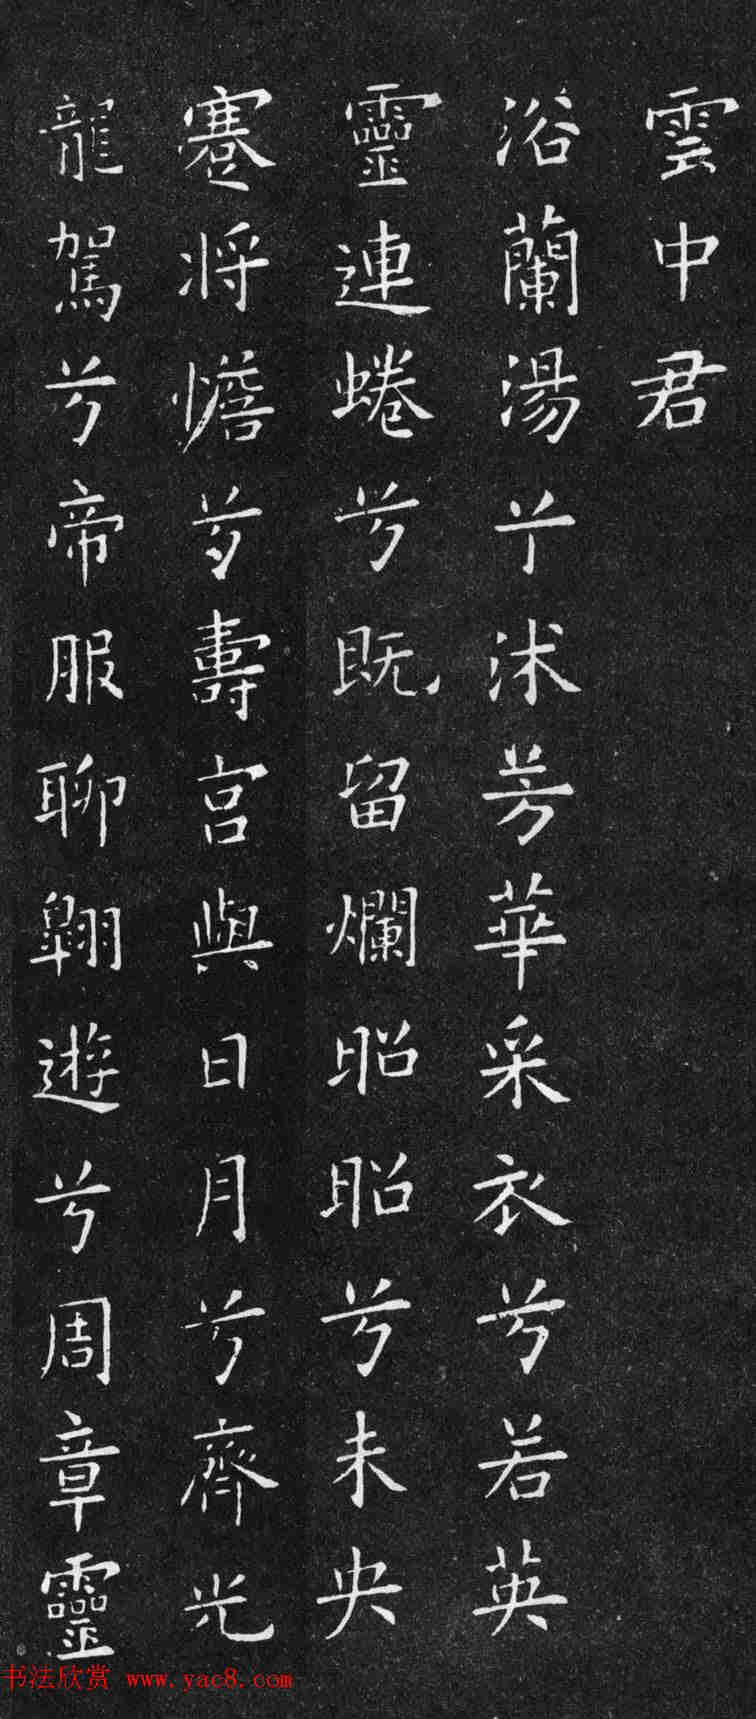 雲中君
浴蘭湯兮沐芳華采衣兮若英
靈連蜷兮既留爛昭昭兮未央
蹇将憺兮壽宮與日月兮齊光
龍駕兮帝服聊翺遊兮周章靈
书法欣赏 www.yac8.com